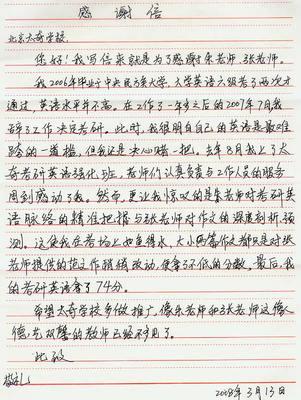 感谢信
北京太奇学校
您好！我写信来就是为了感谢朱老师，张老师。
我2006年毕业于中央民族大学，大学英语六级考了两次才
通过，英语水平并不高。在工作了一年多之后的2007年7月我
辞了工作决定考研。此时，我很明白自己的英语是最难
跨的一道槛，但我还是决心赌一把。去年8月我上了太
奇考研英语强化班，老师们认真负责与工作人员的服务
周到感动了我。然而，更让我惊叹的是朱老师对考研英
语脉络的精准把握与张老师对作文的深度剖析、预
测。这使我在考场上如鱼得水，大小两篇作文都只是对张
老师提供的范文作稍微改动，便拿了不低的分数。最后，我
的考研英语拿了74分。
希望太奇学校多做推广，像朱老师和张老师这像
德艺双馨的教师已经不多见了。
此致
敬礼
2008年3月13日